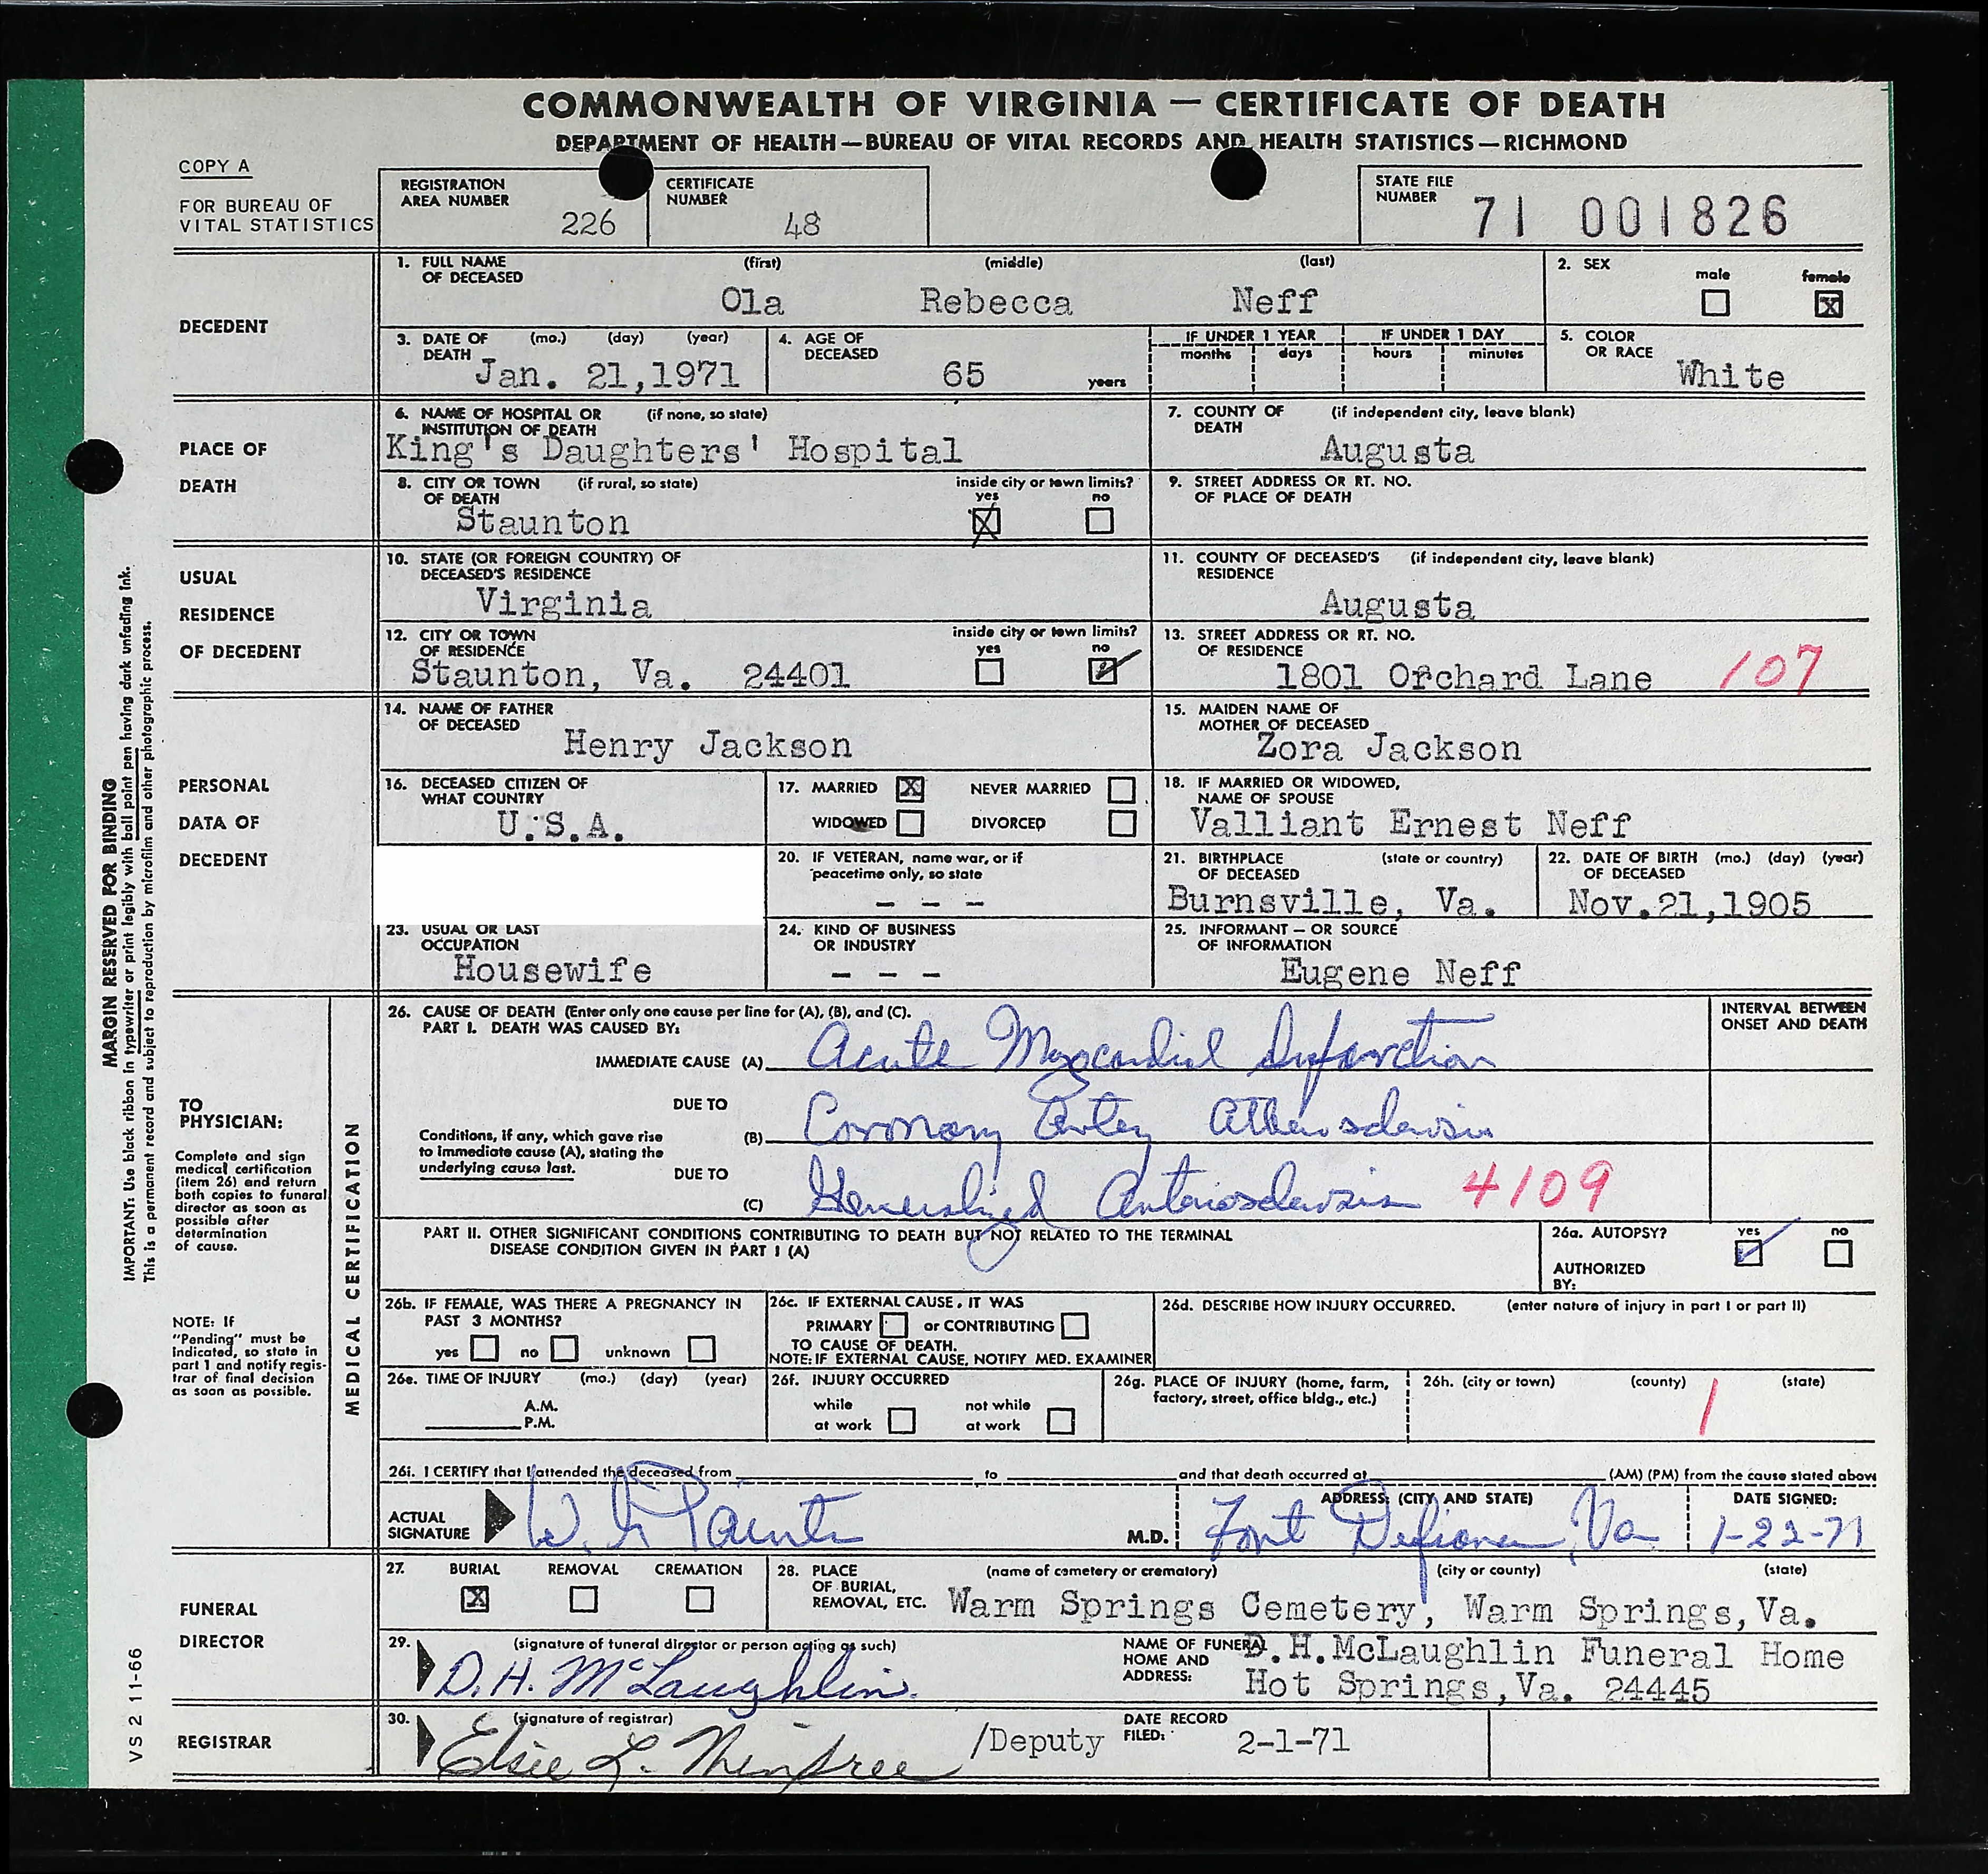 COMMONWEALTH OF VIRGINIA — CERTIFICATE OF DEATH
DEPARTMENT OF HEALTH—BUREAU OF VITAL RECORDS AND HEALTH STATISTICS—RICHMOND
COPY A
FOR BUREAU OF
VITAL STATISTICS
REGISTRATION
AREA NUMBER
226
CERTIFICATE
NUMBER
48
STATE FILE
NUMBER
71 001826
DECEDENT
1. FULL NAME (first) (middle) (last)
OF DECEASED
Ola Rebecca Neff
2. SEX
male female
X
3. DATE OF (mo.) (day) (year)
DEATH
Jan. 21,1971
4. AGE OF
DECEASED
65 years
IF UNDER 1 YEAR
months days
IF UNDER 1 DAY
hours minutes
5. COLOR
OR RACE
White
PLACE OF
DEATH
6. NAME OF HOSPITAL OR (if none, so state)
INSTITUTION OF DEATH
King's Daughters' Hospital
7. COUNTY OF (if independent city, leave blank)
DEATH
Augusta
8. CITY OR TOWN (if rural, so state)
OF DEATH
Staunton
inside city or town limits?
yes no
X
9. STREET ADDRESS OR RT. NO.
OF PLACE OF DEATH
USUAL
RESIDENCE
OF DECEDENT
10. STATE (OR FOREIGN COUNTRY) OF
DECEASED'S RESIDENCE
Virginia
11. COUNTY OF DECEASED'S (if independent city, leave blank)
RESIDENCE
Augusta
12. CITY OR TOWN
OF RESIDENCE
Staunton, Va. 24401
inside city or town limits?
yes no
13. STREET ADDRESS OR RT. NO.
OF RESIDENCE
1801 Orchard Lane 107
PERSONAL
DATA OF
DECEDENT
14. NAME OF FATHER
OF DECEASED
Henry Jackson
15. MAIDEN NAME OF
MOTHER OF DECEASED
Zora Jackson
16. DECEASED CITIZEN OF
WHAT COUNTRY
U.S.A.
17. MARRIED X NEVER MARRIED
WIDOWED DIVORCED
18. IF MARRIED OR WIDOWED,
NAME OF SPOUSE
Valliant Ernest Neff
20. IF VETERAN, name war, or if
peacetime only, so state
- - -
21. BIRTHPLACE (state or country)
OF DECEASED
Burnsville, Va.
22. DATE OF BIRTH (mo.) (day) (year)
OF DECEASED
Nov.21,1905
23. USUAL OR LAST
OCCUPATION
Housewife
24. KIND OF BUSINESS
OR INDUSTRY
- - -
25. INFORMANT — OR SOURCE
OF INFORMATION
Eugene Neff
MARGIN RESERVED FOR BINDING
IMPORTANT: Use black ribbon in typewriter or print legibly with ball point pen having dark unfading ink.
This is a permanent record and subject to reproduction by microfilm and other photographic process.
VS 2 11-66
TO
PHYSICIAN:
Complete and sign
medical certification
(item 26) and return
both copies to funeral
director as soon as
possible after
determination
of cause.
NOTE: If
"Pending" must be
indicated, so state in
part 1 and notify regis-
trar of final decision
as soon as possible.
MEDICAL CERTIFICATION
26. CAUSE OF DEATH (Enter only one cause per line for (A), (B), and (C).
PART I. DEATH WAS CAUSED BY:
INTERVAL BETWEEN
ONSET AND DEATH
IMMEDIATE CAUSE (A) Acute Myocardial Infarction
DUE TO
(B) Coronary Artery Atherosclerosis
Conditions, if any, which gave rise
to immediate cause (A), stating the
underlying cause last.
DUE TO
(C) Generalized Arteriosclerosis 4109
PART II. OTHER SIGNIFICANT CONDITIONS CONTRIBUTING TO DEATH BUT NOT RELATED TO THE TERMINAL
DISEASE CONDITION GIVEN IN PART I (A)
26a. AUTOPSY? yes no
AUTHORIZED
BY:
26b. IF FEMALE, WAS THERE A PREGNANCY IN
PAST 3 MONTHS?
yes no unknown
26c. IF EXTERNAL CAUSE, IT WAS
PRIMARY or CONTRIBUTING
TO CAUSE OF DEATH.
NOTE: IF EXTERNAL CAUSE, NOTIFY MED. EXAMINER
26d. DESCRIBE HOW INJURY OCCURRED. (enter nature of injury in part I or part II)
26e. TIME OF INJURY (mo.) (day) (year)
A.M.
P.M.
26f. INJURY OCCURRED
while not while
at work at work
26g. PLACE OF INJURY (home, farm,
factory, street, office bldg., etc.)
26h. (city or town) (county) (state)
1
26i. I CERTIFY that I attended the deceased from to and that death occurred at (AM) (PM) from the cause stated above
ACTUAL
SIGNATURE
Painter
M.D.
ADDRESS: (CITY AND STATE)
Fort Defiance, Va
DATE SIGNED:
1-22-71
FUNERAL
DIRECTOR
27. BURIAL REMOVAL CREMATION
X
28. PLACE (name of cemetery or crematory) (city or county) (state)
OF BURIAL,
REMOVAL, ETC.
Warm Springs Cemetery, Warm Springs,Va.
29. (signature of funeral director or person acting as such)
D. H. McLaughlin.
NAME OF FUNERAL
HOME AND
ADDRESS:
D.H.McLaughlin Funeral Home
Hot Springs,Va. 24445
REGISTRAR
30. (signature of registrar)
Elsie L. /Deputy
DATE RECORD
FILED:
2-1-71